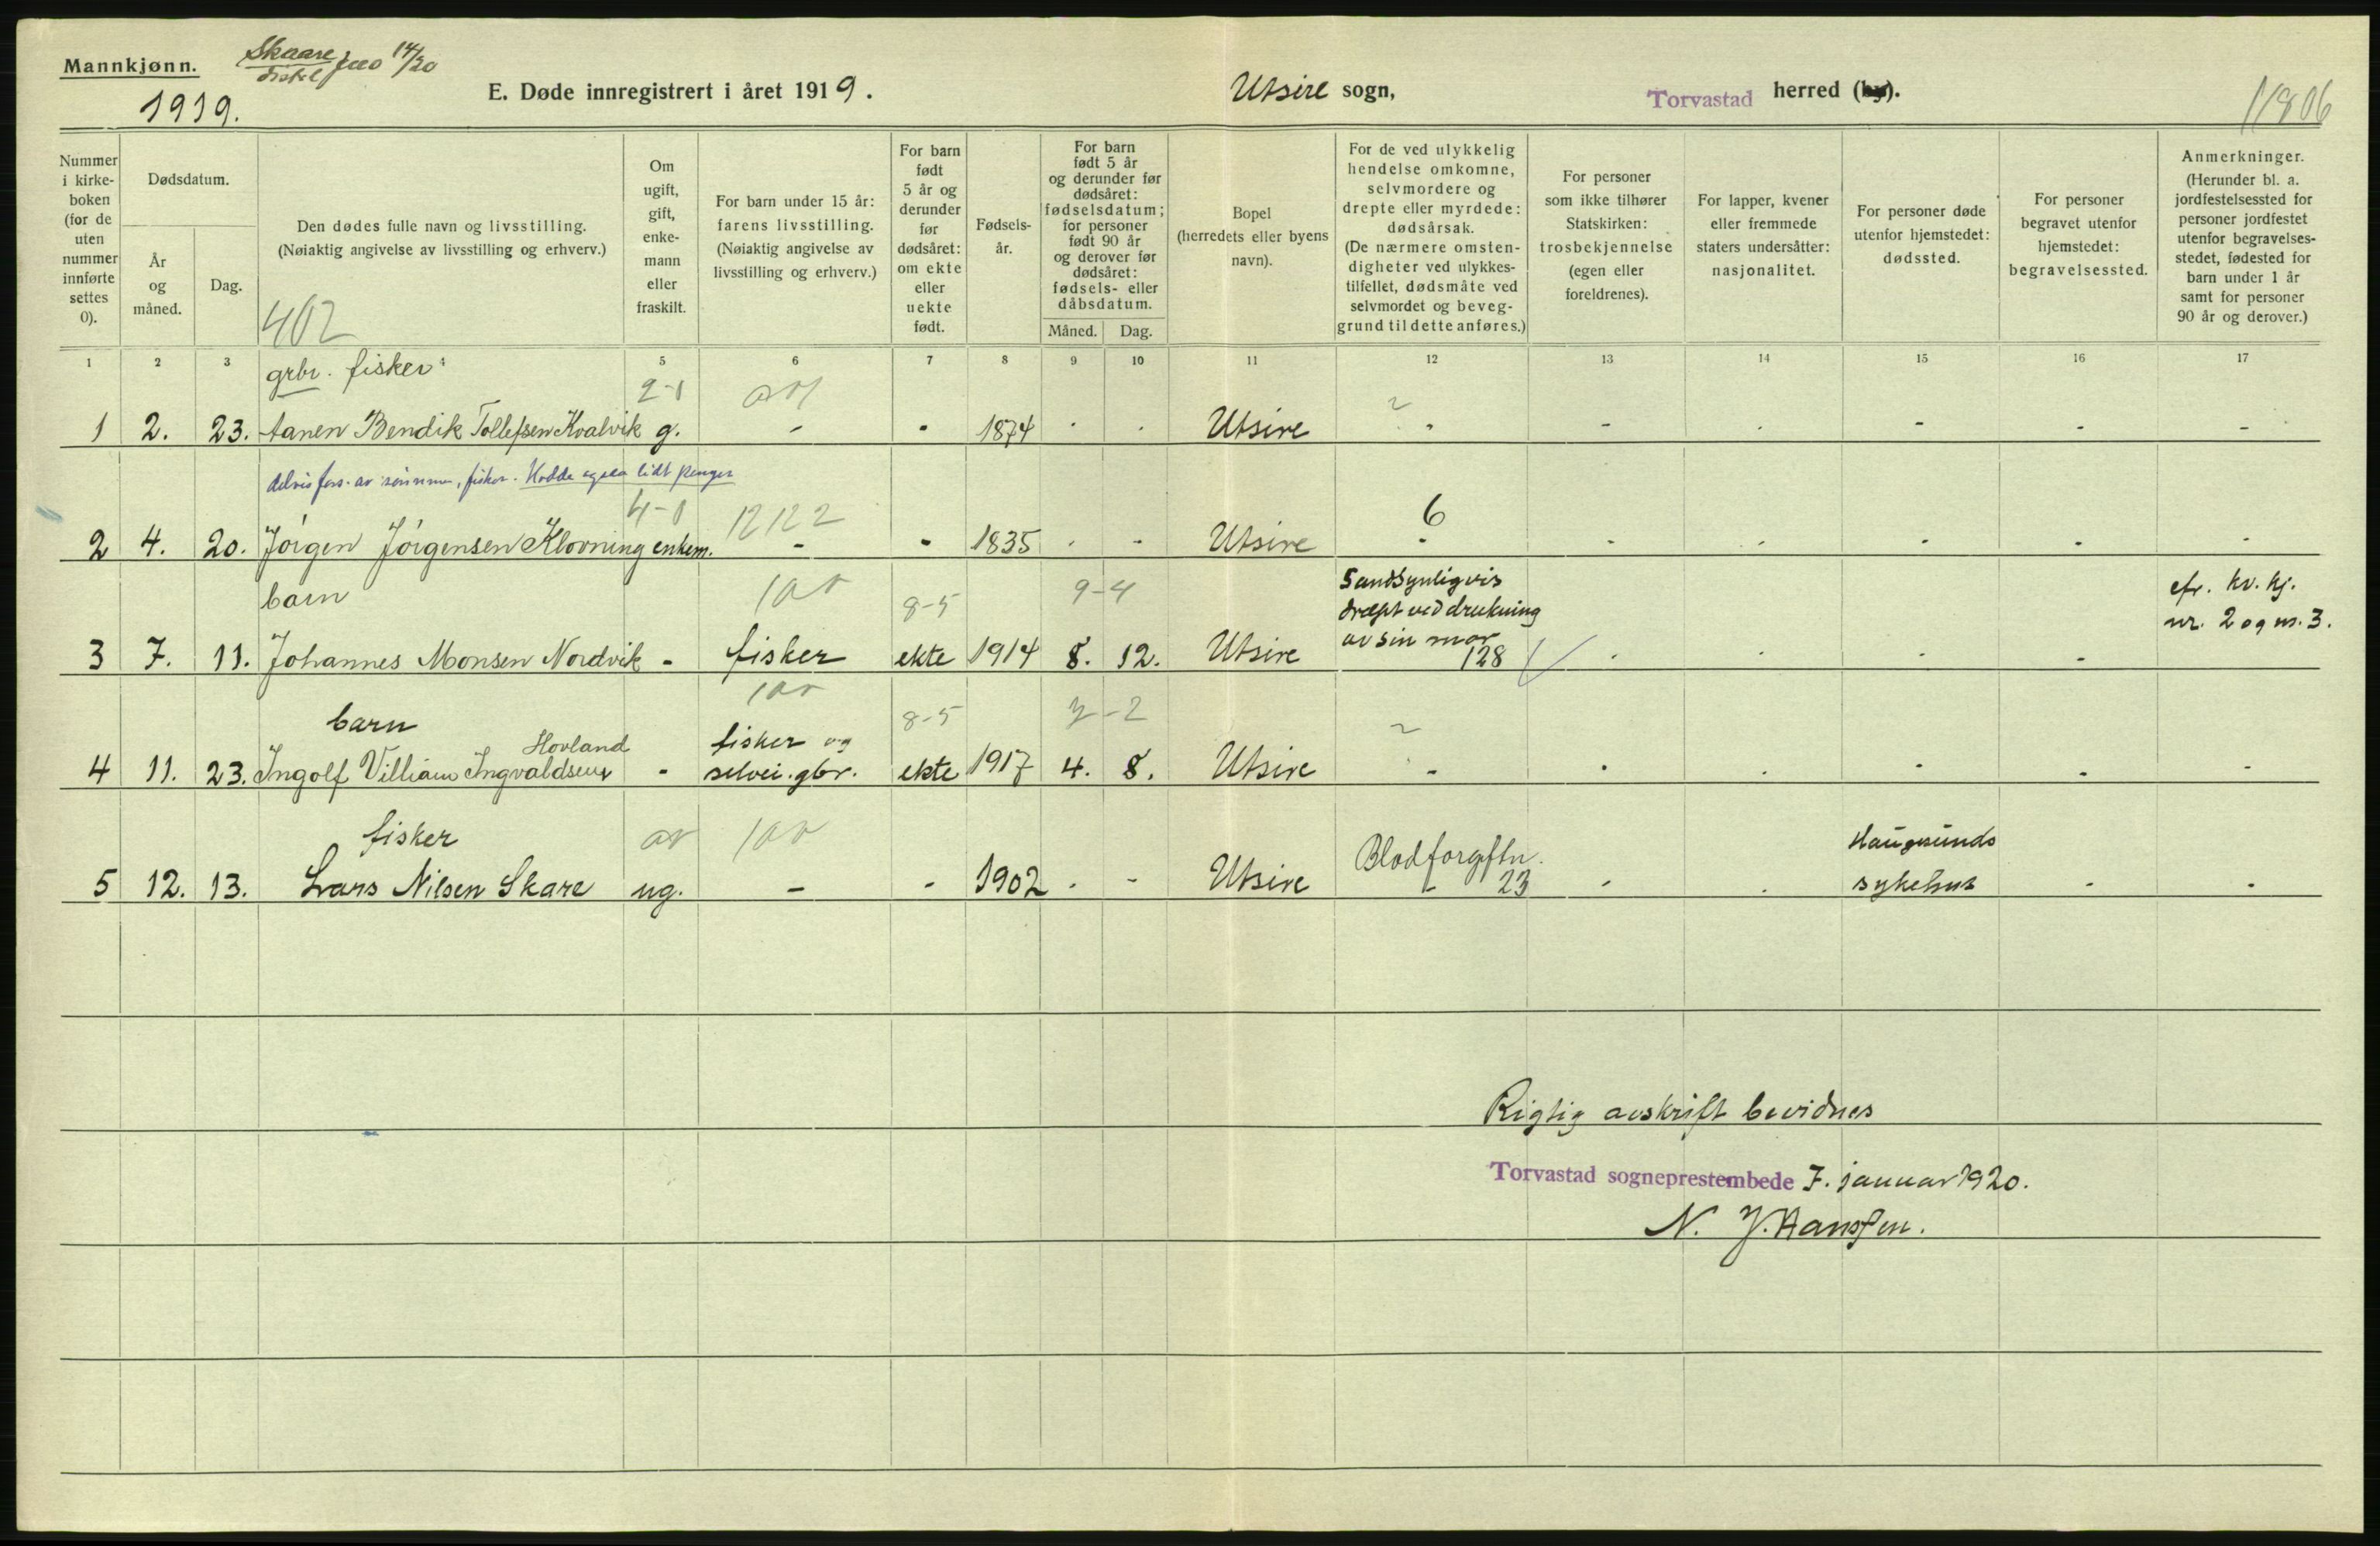 Mannkjønn.
Skaare
14/20
1919.
E. Døde innregistrert i året 1919.
Utsire sogn,
Torvastad herred (by).
11806
Nummer i kirkeboken (for de uten nummer innførte settes 0).
Dødsdatum.
År og måned.
Dag.
Den dødes fulle navn og livsstilling.
(Nøiaktig angivelse av livsstilling og erhverv.)
402
Om ugift, gift, enkemann eller fraskilt.
For barn under 15 år: farens livsstilling. (Nøiaktig angivelse av livsstilling og erhverv.)
For barn født 5 år og derunder før dødsåret: om ekte eller uekte født.
Fødselsår.
For barn født 5 år og derunder før dødsåret: fødselsdatum; for personer født 90 år og derover før dødsåret: fødsels- eller dåbsdatum.
Måned. Dag.
Bopel (herredets eller byens navn).
For de ved ulykkelig hendelse omkomne, selvmordere og drepte eller myrdede: dødsårsak. (De nærmere omstendigheter ved ulykkestilfellet, dødsmåte ved selvmordet og beveggrund til dette anføres.)
For personer som ikke tilhører Statskirken: trosbekjennelse (egen eller foreldrenes).
For lapper, kvener eller fremmede staters undersåtter: nasjonalitet.
For personer døde utenfor hjemstedet: dødssted.
For personer begravet utenfor hjemstedet: begravelsessted.
Anmerkninger. (Herunder bl. a. jordfestelsessted for personer jordfestet utenfor begravelsesstedet, fødested for barn under 1 år samt for personer 90 år og derover.)
1 2 3 4 5 6 7 8 9 10 11 12 13 14 15 16 17
grbr. fisker
2-1
1 2. 23. Aanen Bendik Tollefsen Kvalvik g. - - 1874 - - Utsire - - - - - -
fisker. Hadde ogsaa lidt penger
4-1 12122 6
2 4. 20. Jørgen Jørgensen Klovning enkem. - - 1835 - - Utsire - - - - - -
barn 8-5 9-4 Sandsynligvis dræpt ved drukning av sin mor 128 cfr. kv. kj. nr. 2 og nr. 3.
3 7. 11. Johannes Monsen Nordvik - fisker ekte 1914 8. 12. Utsire - - - -
barn 8-5 2
4 11. 23. Ingolf Villiam Ingvaldsen Hovland - fisker og selvei. gbr. ekte 1917 4. 8. Utsire - - - - - -
fisker Blodforgiftn. 23 Haugesunds sykehus
5 12. 13. Lars Nilsen Skare ug. - - 1902 - - Utsire - - - - -
Rigtig avskrift bevidnes
Torvastad sogneprestembede 7. januar 1920.
N. J. Hanssen.